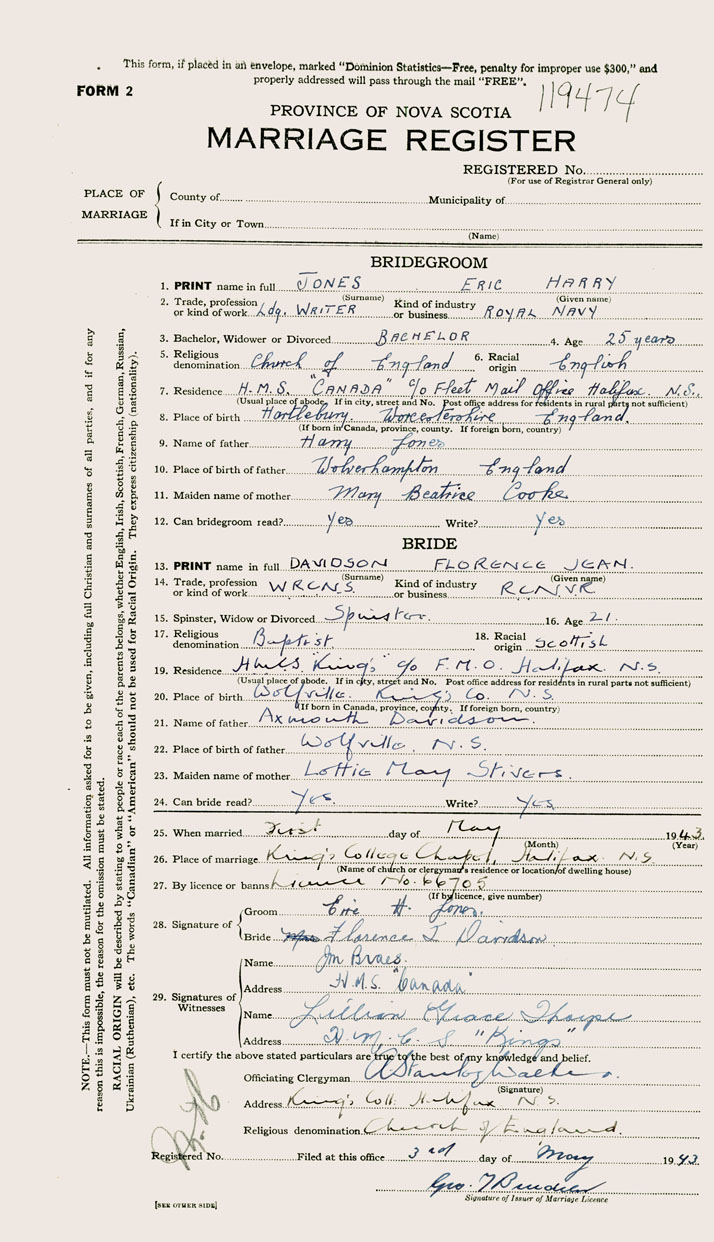 This form, if placed in an envelope, marked "Dominion Statistics—Free, penalty for improper use $300," and
properly addressed will pass through the mail "FREE".
FORM 2
119474
PROVINCE OF NOVA SCOTIA
MARRIAGE REGISTER
REGISTERED No.
(For use of Registrar General only)
PLACE OF MARRIAGE
County of Municipality of
If in City or Town
(Name)
BRIDEGROOM
1. PRINT name in full JONES ERIC HARRY
(Surname) (Given name)
2. Trade, profession or kind of work Ldg. WRITER Kind of industry or business ROYAL NAVY
3. Bachelor, Widower or Divorced BACHELOR 4. Age 25 years
5. Religious denomination Church of England 6. Racial origin English
7. Residence H.M.S. "CANADA" c/o Fleet Mail Office Halifax. N.S.
(Usual place of abode. If in city, street and No. Post office address for residents in rural parts not sufficient)
8. Place of birth Hartlebury. Worcestershire England.
(If born in Canada, province, county. If foreign born, country)
9. Name of father Harry Jones
10. Place of birth of father Wolverhampton England
11. Maiden name of mother Mary Beatrice Cooke
12. Can bridegroom read? Yes Write? Yes
BRIDE
13. PRINT name in full DAVIDSON FLORENCE JEAN.
(Surname) (Given name)
14. Trade, profession or kind of work W.R.C.N.S. Kind of industry or business RCNVR
15. Spinster, Widow or Divorced Spinster. 16. Age 21.
17. Religious denomination Baptist. 18. Racial origin Scottish
19. Residence "King's" c/o F.M.O. Halifax N.S.
(Usual place of abode. If in city, street and No. Post office address for residents in rural parts not sufficient)
20. Place of birth Wolfville. King's Co. N.S.
(If born in Canada, province, county. If foreign born, country)
21. Name of father Axmouth Davidson.
22. Place of birth of father Wolfville, N.S.
23. Maiden name of mother Lottie May Stivers.
24. Can bride read? Yes. Write? Yes
25. When married First day of May 1943.
(Month) (Year)
26. Place of marriage King's College Chapel, Halifax. N.S.
(Name of church or clergyman's residence or location of dwelling house)
27. By licence or banns Licence No. 66705
(If by licence, give number)
28. Signature of
Groom Eric H. Jones.
Bride Florence J Davidson
29. Signatures of Witnesses
Name Jm Braes.
Address H.M.S. "Canada"
Name Lillian Grace Thorpe
Address H.M.C.S "Kings"
I certify the above stated particulars are true to the best of my knowledge and belief.
Officiating Clergyman A Stanley Walker.
(Signature)
Address King's Coll. Halifax N.S.
Religious denomination Church of England.
Registered No. Filed at this office 3rd day of May 1943.
Geo.
Signature of Issuer of Marriage Licence
[SEE OTHER SIDE]
NOTE.—This form must not be mutilated. All information asked for is to be given, including full Christian and surnames of all parties, and if for any
reason this is impossible, the reason for the omission must be stated.
RACIAL ORIGIN will be described by stating to what people or race each of the parents belongs, whether English, Irish, Scottish, French, German, Russian,
Ukrainian (Ruthenian), etc. The words "Canadian" or "American" should not be used for Racial Origin. They express citizenship (nationality).